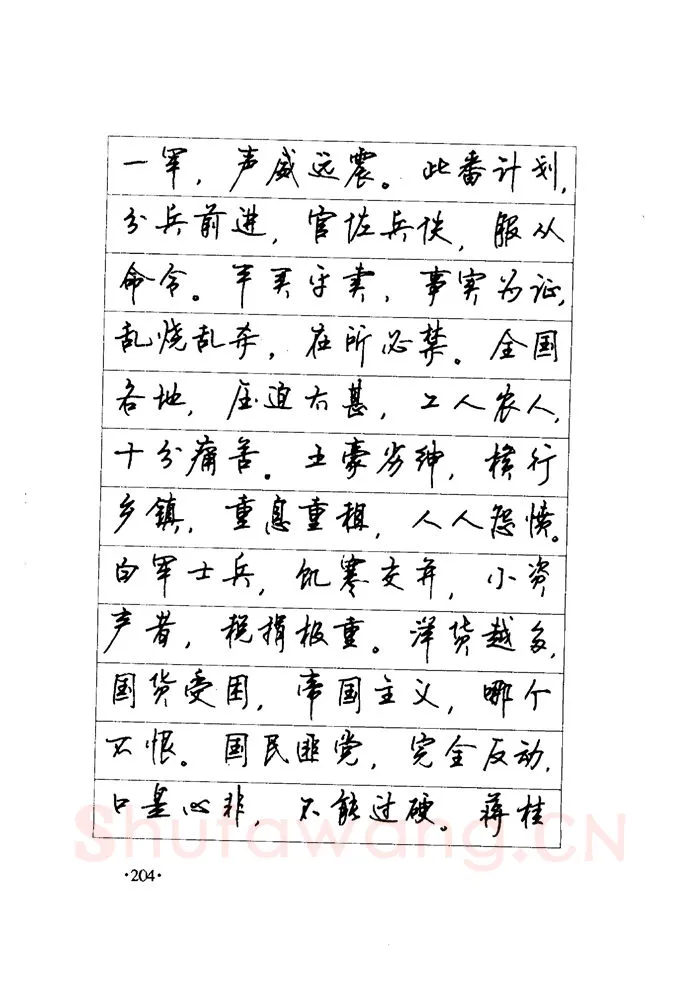 一军，声威远震。此番计划，
分兵前进，官佐兵伕，服从
命令。平买平卖，事实为证，
乱烧乱杀，在所必禁。全国
各地，压迫太甚，工人农人，
十分痛苦。土豪劣绅，横行
乡镇，重息重租，人人怨愤。
白军士兵，饥寒交并，小资
产者，税捐极重。洋货越多，
国货受困，帝国主义，哪个
不恨。国民匪党，完全反动，
口是心非，不能过硬。蒋桂
Shufawang.CN
·204·